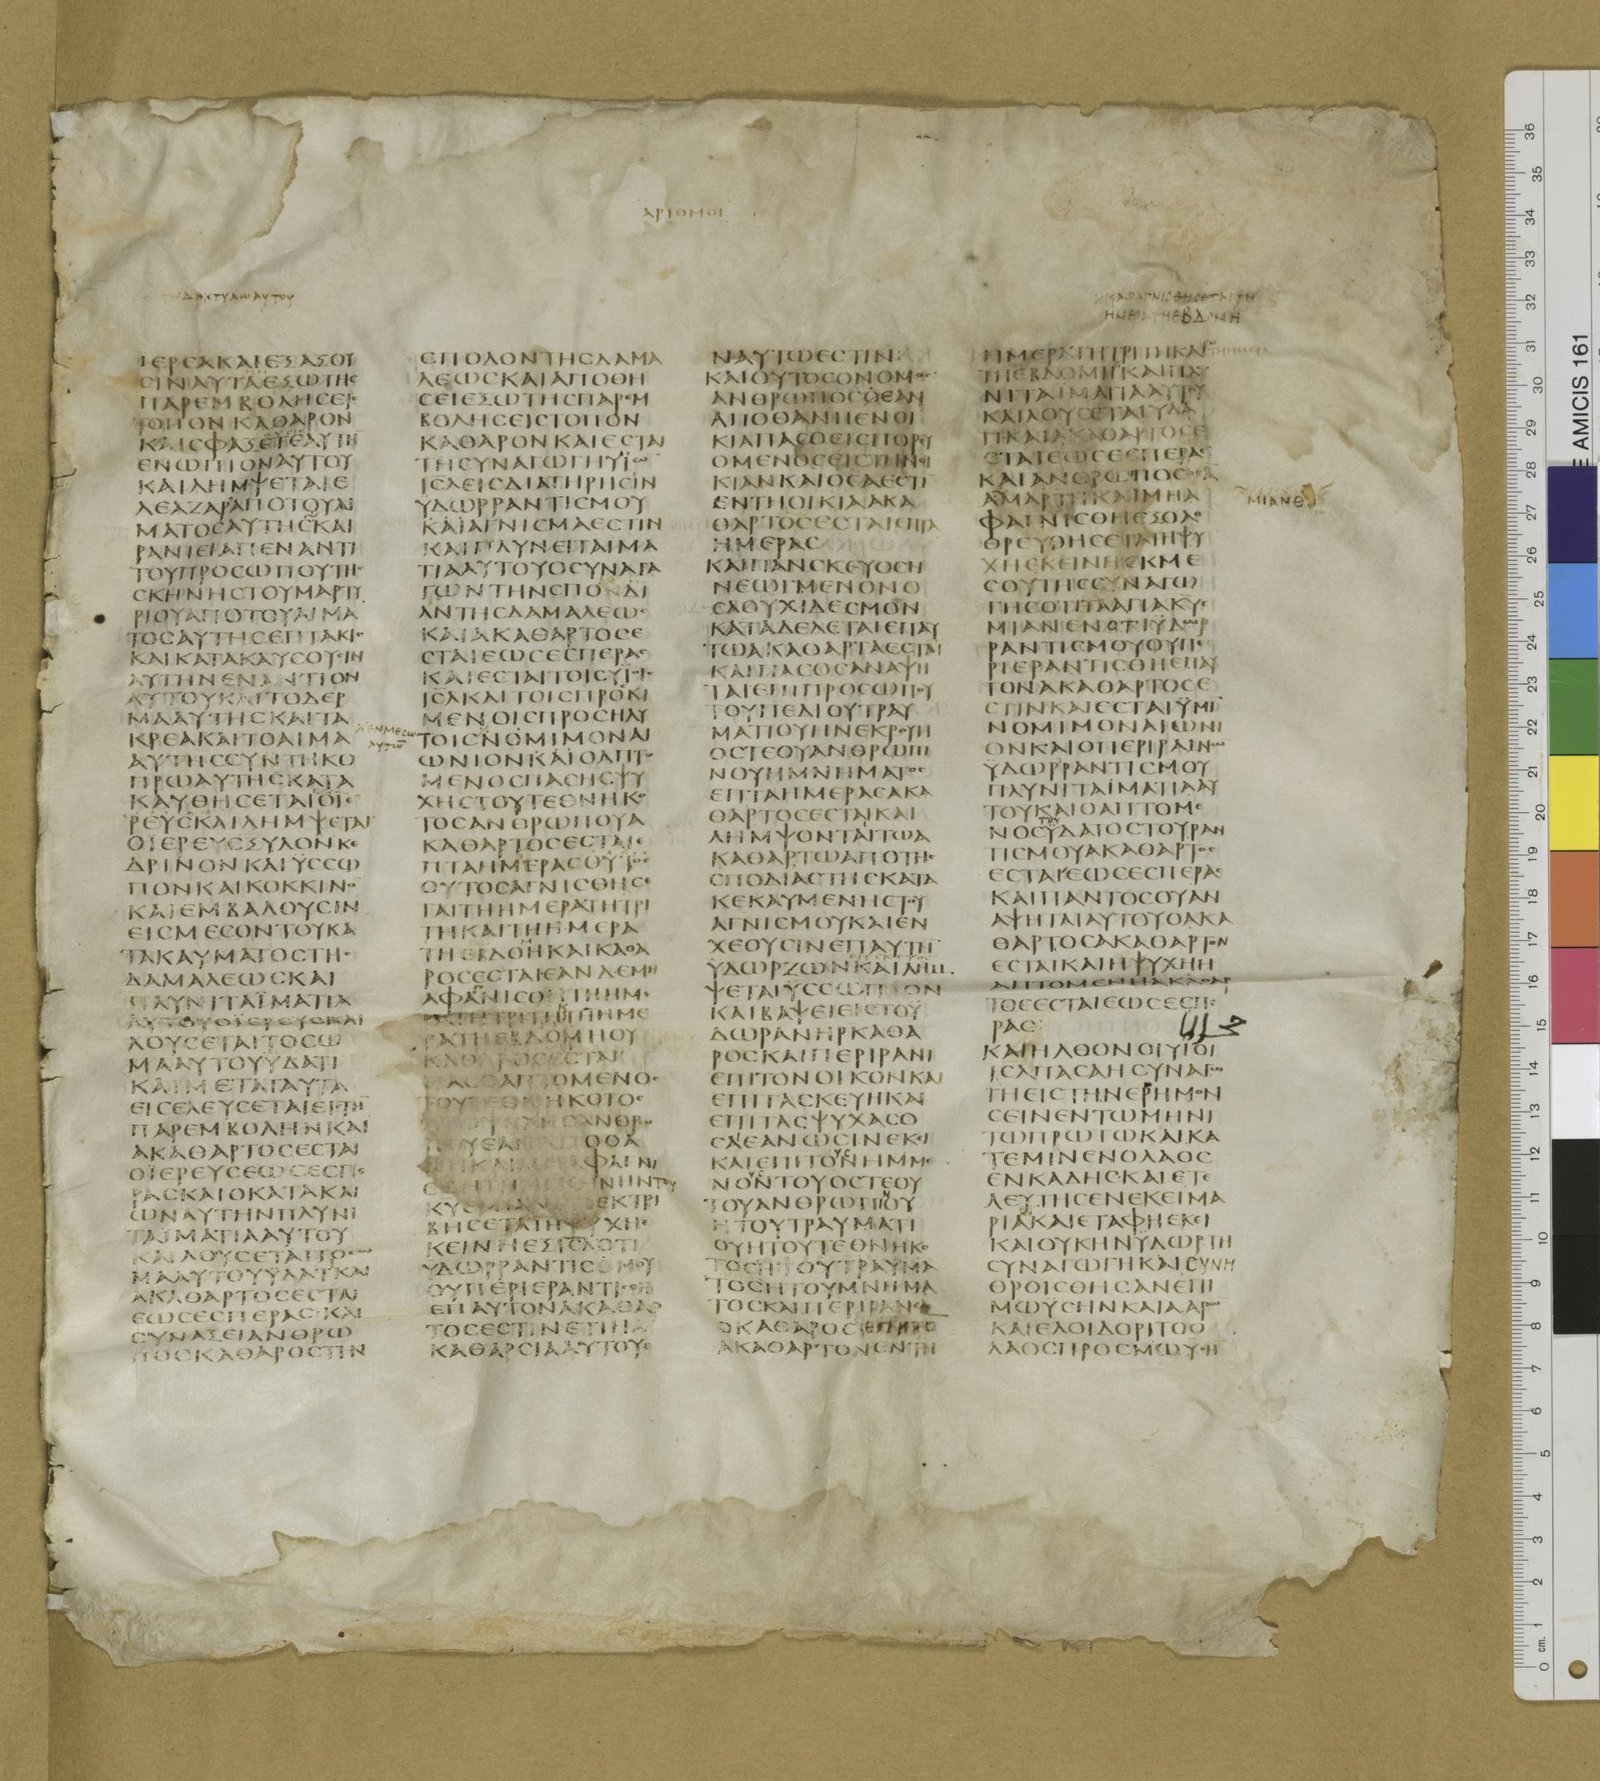 ΑΡΙΘΜΟΙ
ΙΕΡΕΑΚΑΙΕΞΑΞΟΥ
ϹΙΝΑΥΤΑΕΞΩΤΗϹ
ΠΑΡΕΜΒΟΛΗϹΕΙϹ
ΤΟΠΟΝΚΑΘΑΡΟΝ
ΕΝΩΠΙΟΝΑΥΤΟΥ
ΚΑΙΛΗΜΨΕΤΑΙΕ
ΛΕΑΖΑΡΑΠΟΤΟΥΑΙ
ΜΑΤΟϹΑΥΤΗϹΚΑΙ
ΡΑΝΙΕΙΑΠΕΝΑΝΤΙ
ΤΟΥΠΡΟϹΩΠΟΥΤΗϹ
ϹΚΗΝΗϹΤΟΥΜΑΡΤΥ
ΡΙΟΥΑΠΟΤΟΥΑΙΜΑ
ΤΟϹΑΥΤΗϹΕΠΤΑΚΙϹ
ΚΑΙΚΑΤΑΚΑΥϹΟΥϹΙΝ
ΑΥΤΗΝΕΝΑΝΤΙΟΝ
ΑΥΤΟΥΚΑΙΤΟΔΕΡ
ΜΑΑΥΤΗϹΚΑΙΤΑ
ΚΡΕΑΚΑΙΤΟΑΙΜΑ
ΑΥΤΗϹϹΥΝΤΗΚΟ
ΠΡΩΑΥΤΗϹΚΑΤΑ
ΚΑΥΘΗϹΕΤΑΙΟΪΕ
ΡΕΥϹΚΑΙΛΗΜΨΕΤΑΙ
ΟΪΕΡΕΥϹΞΥΛΟΝΚΕ
ΔΡΙΝΟΝΚΑΙΫϹϹΩ
ΠΟΝΚΑΙΚΟΚΚΙΝΟ
ΚΑΙΕΜΒΑΛΟΥϹΙΝ
ΕΙϹΜΕϹΟΝΤΟΥΚΑ
ΤΑΚΑΥΜΑΤΟϹΤΗϹ
ΔΑΜΑΛΕΩϹΚΑΙ
ΠΛΥΝΙΤΑΪΜΑΤΙΑ
ΑΥΤΟΥΟΪΕΡΕΥϹΚΑΙ
ΛΟΥϹΕΤΑΙΤΟϹΩ
ΜΑΑΥΤΟΥΫΔΑΤΙ
ΚΑΙΜΕΤΑΤΑΥΤΑ
ΕΙϹΕΛΕΥϹΕΤΑΙΕΙϹΤΗ
ΠΑΡΕΜΒΟΛΗΝΚΑΙ
ΑΚΑΘΑΡΤΟϹΕϹΤΑΙ
ΟΪΕΡΕΥϹΕΩϹΕϹΠΕ
ΡΑϹΚΑΙΟΚΑΤΑΚΑΙ
ΩΝΑΥΤΗΝΠΛΥΝΙ
ΤΑΪΜΑΤΙΑΑΥΤΟΥ
ΚΑΙΛΟΥϹΕΤΑΙΤΟϹΩ
ΜΑΑΥΤΟΥΫΔΑΤΙΚΑΙ
ΑΚΑΘΑΡΤΟϹΕϹΤΑΙ
ΕΩϹΕϹΠΕΡΑϹΚΑΙ
ϹΥΝΑΞΕΙΑΝΘΡΩ
ΠΟϹΚΑΘΑΡΟϹΤΗΝ
ϹΠΟΔΟΝΤΗϹΔΑΜΑ
ΛΕΩϹΚΑΙΑΠΟΘΗ
ϹΕΙΕΞΩΤΗϹΠΑΡΕΜ
ΒΟΛΗϹΕΙϹΤΟΠΟΝ
ΚΑΘΑΡΟΝΚΑΙΕϹΤΑΙ
ΤΗϹΥΝΑΓΩΓΗΥΪΩ
ΙϹΛΕΙϹΔΙΑΤΗΡΗϹΙΝ
ΫΔΩΡΡΑΝΤΙϹΜΟΥ
ΚΑΙΑΓΝΙϹΜΑΕϹΤΙΝ
ΚΑΙΠΛΥΝΕΙΤΑΙΜΑ
ΤΙΑΑΥΤΟΥΟϹΥΝΑΓΑ
ΓΩΝΤΗΝϹΠΟΔΙ
ΑΝΤΗϹΔΑΜΑΛΕΩϹ
ΚΑΙΑΚΑΘΑΡΤΟϹΕ
ϹΤΑΙΕΩϹΕϹΠΕΡΑϹ
ΚΑΙΕϹΤΑΙΤΟΙϹΥΪΟΙϹ
ΙϹΛΚΑΙΤΟΙϹΠΡΟϹΚΙ
ΜΕΝΟΙϹΠΡΟϹΗΛΥ
ΤΟΙϹΝΟΜΙΜΟΝΑΙ
ΩΝΙΟΝΚΑΙΟΑΠΤΟ
ΜΕΝΟϹΠΑϹΗϹΨΥ
ΧΗϹΤΟΥΤΕΘΝΗΚΟ
ΤΟϹΑΝΘΡΩΠΟΥΑ
ΚΑΘΑΡΤΟϹΕϹΤΑΙΕ
ΠΤΑΗΜΕΡΑϹΟΥΤΟϹ
ΟΥΤΟϹΑΓΝΙϹΘΗϹΕ
ΤΑΙΤΗΗΜΕΡΑΤΗΤΡΙ
ΤΗΚΑΙΤΗΗΜΕΡΑ
ΤΗΕΒΔΟΜΗΚΑΙΚΑΘΑ
ΡΟϹΕϹΤΑΙΕΑΝΔΕΜΗ
ΑΦΑΓΝΙϹΘΗΤΗΗΜΕ
ΡΑΤΗΕΒΔΟΜΗΟΥ
ΚΑΘΑΡΟϹΕϹΤΑΙ
ΠΑϹΟΑΠΤΟΜΕΝΟϹ
ΤΟΥΤΕΘΝΗΚΟΤΟϹ
ΒΗϹΕΤΑΙΗΨΥΧΗΕ
ΚΕΙΝΗΕΞΙϹΛΟΤΙ
ΫΔΩΡΡΑΝΤΙϹΜΟΥ
ΟΥΠΕΡΙΕΡΑΝΤΙϹΘΗ
ΕΠΑΥΤΟΝΑΚΑΘΑΡ
ΤΟϹΕϹΤΙΝΕΤΙΗΑ
ΚΑΘΑΡϹΙΑΑΥΤΟΥΕ
ΝΑΥΤΩΕϹΤΙΝ
ΚΑΙΟΥΤΟϹΟΝΟΜΟϹ
ΑΝΘΡΩΠΟϹΟΕΑΝ
ΑΠΟΘΑΝΗΕΝΟΙ
ΚΙΑΠΑϹΟΕΙϹΠΟΡΕΥ
ΟΜΕΝΟϹΕΙϹΤΗΝΟΙ
ΚΙΑΝΚΑΙΟϹΑΕϹΤΙ
ΕΝΤΗΟΙΚΙΑΑΚΑ
ΘΑΡΤΟϹΕϹΤΑΙΕΠΤΑ
ΗΜΕΡΑϹ
ΚΑΙΠΑΝϹΚΕΥΟϹΗ
ΝΕΩΓΜΕΝΟΝΟ
ϹΑΟΥΧΙΔΕϹΜΟΝ
ΚΑΤΑΔΕΔΕΤΑΙΕΠΑΥ
ΤΩΑΚΑΘΑΡΤΑΕϹΤΑΙ
ΚΑΙΠΑϹΟϹΑΝΑΨΗ
ΤΑΙΕΠΙΠΡΟϹΩΠΟΥ
ΤΟΥΠΕΔΙΟΥΤΡΑΥ
ΜΑΤΙΟΥΗΝΕΚΡΟΥΗ
ΟϹΤΕΟΥΑΝΘΡΩΠΙ
ΝΟΥΗΜΝΗΜΑΤΟϹ
ΕΠΤΑΗΜΕΡΑϹΑΚΑ
ΘΑΡΤΟϹΕϹΤΑΙΚΑΙ
ΛΗΜΨΟΝΤΑΙΤΩΑ
ΚΑΘΑΡΤΩΑΠΟΤΗϹ
ϹΠΟΔΙΑϹΤΗϹΚΑΤΑ
ΚΕΚΑΥΜΕΝΗϹΤΟΥ
ΑΓΝΙϹΜΟΥΚΑΙΕΝ
ΧΕΟΥϹΙΝΕΠΑΥΤΗ
ΫΔΩΡΖΩΝΚΑΙΛΗΜ
ΨΕΤΑΙΫϹϹΩΠΟΝ
ΚΑΙΒΑΨΕΙΕΙϹΤΟΥ
ΔΩΡΑΝΗΡΚΑΘΑ
ΡΟϹΚΑΙΠΕΡΙΡΑΝΙ
ΕΠΙΤΟΝΟΙΚΟΝΚΑΙ
ΕΠΙΤΑϹΚΕΥΗΚΑΙ
ΕΠΙΤΑϹΨΥΧΑϹΟ
ϹΑΙΕΑΝΩϹΙΝΕΚΙ
ΚΑΙΕΠΙΤΟΝΗΜΜΕ
ΝΟΝΤΟΥΟϹΤΕΟΥ
ΤΟΥΑΝΘΡΩΠΙΟΥ
ΗΤΟΥΤΡΑΥΜΑΤΙ
ΟΥΗΤΟΥΤΕΘΝΗΚΟ
ΤΟϹΗΤΟΥΜΝΗΜΑ
ΤΟϹΚΑΙΠΕΡΙΡΑΝΕΙ
ΟΚΑΘΑΡΟϹΕΠΙΤΟ
ΑΚΑΘΑΡΤΟΝΕΝΤΗ
ΗΜΕΡΑΤΗΤΡΙΤΗΚΑΙ
ΤΗΕΒΔΟΜΗΚΑΙΠΛΥ
ΝΙΤΑΪΜΑΤΙΑΑΥΤΟΥ
ΚΑΙΛΟΥϹΕΤΑΙΫΔΑ
ΤΙΚΑΙΑΚΑΘΑΡΤΟϹΕ
ϹΤΑΙΕΩϹΕϹΠΕΡΑϹ
ΚΑΙΑΝΘΡΩΠΟϹΟϹΑ
ΑΜΑΡΤΗΚΑΙΜΗΑ
ΦΑΓΝΙϹΘΗΕΞΟΛΟ
ΘΡΕΥΘΗϹΕΤΑΙΗΨΥ
ΧΗΕΚΕΙΝΗΕΚΜΕ
ϹΟΥΤΗϹϹΥΝΑΓΩ
ΓΗϹΟΤΙΤΑΑΓΙΑΚΥ
ΜΙΑΝΕΝΟΤΙΥΔΩΡ
ΡΑΝΤΙϹΜΟΥΟΥΠΕ
ΡΙΕΡΑΝΤΙϹΘΗΕΠΑΥ
ΤΟΝΑΚΑΘΑΡΤΟϹΕ
ϹΤΙΝΚΑΙΕϹΤΑΙΫΜΙ
ΝΟΜΙΜΟΝΑΙΩΝΙ
ΟΝΚΑΙΟΠΕΡΙΡΑΙΝΩ
ΫΔΩΡΡΑΝΤΙϹΜΟΥ
ΠΛΥΝΙΤΑΪΜΑΤΙΑΑΥ
ΤΟΥΚΑΙΟΑΠΤΟΜΕ
ΝΟϹΫΔΑΤΟϹΤΟΥΡΑΝ
ΤΙϹΜΟΥΑΚΑΘΑΡΤΟϹ
ΕϹΤΑΙΕΩϹΕϹΠΕΡΑϹ
ΚΑΙΠΑΝΤΟϹΟΥΑΝ
ΑΨΗΤΑΙΑΥΤΟΥΟΑΚΑ
ΘΑΡΤΟϹΑΚΑΘΑΡΤΟΝ
ΕϹΤΑΙΚΑΙΗΨΥΧΗΗ
ΑΠΤΟΜΕΝΗΑΚΑΘΑΡ
ΤΟϹΕϹΤΑΙΕΩϹΕϹΠΕ
ΡΑϹ
ΚΑΙΗΛΘΟΝΟΙΥΙΟΙ
ΙϹΛΠΑϹΑΗϹΥΝΑΓΩ
ΓΗΕΙϹΤΗΝΕΡΗΜΟΝ
ϹΕΙΝΕΝΤΩΜΗΝΙ
ΤΩΠΡΩΤΩΚΑΙΚΑ
ΤΕΜΙΝΕΝΟΛΑΟϹ
ΕΝΚΑΔΗϹΚΑΙΕΤΕ
ΛΕΥΤΗϹΕΝΕΚΕΙΜΑ
ΡΙΑΚΑΙΕΤΑΦΗΕΚΕΙ
ΚΑΙΟΥΚΗΝΥΔΩΡΤΗ
ϹΥΝΑΓΩΓΗΚΑΙϹΥΝΗ
ΘΡΟΙϹΘΗϹΑΝΕΠΙ
ΜΩΥϹΗΝΚΑΙΑΑΡΩ
ΚΑΙΕΛΟΙΔΟΡΙΤΟΟ
ΛΑΟϹΠΡΟϹΜΩΥϹΗ
ΜΙΑΝΘΗ